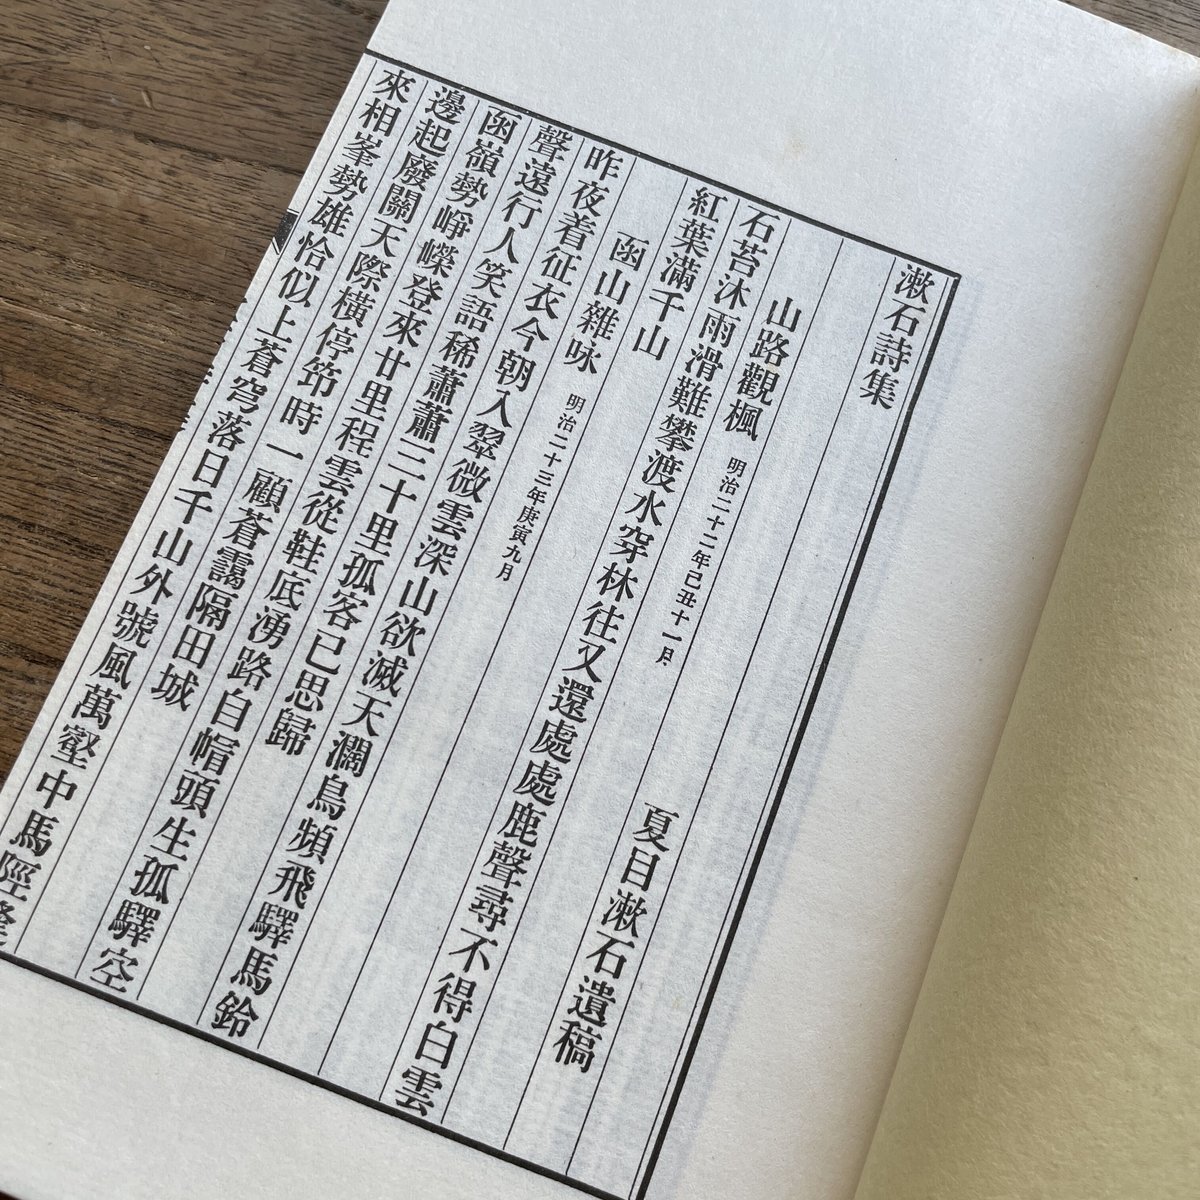 漱石詩集
夏目漱石遺稿
山路觀楓 明治二十二年己丑十一月
石苔沐雨滑難攀渡水穿林往又還處處鹿聲尋不得白雲
紅葉滿千山
函山雜咏 明治二十三年庚寅九月
昨夜着征衣今朝入翠微雲深山欲滅天濶鳥頻飛驛馬鈴
聲遠行人笑語稀蕭蕭三十里孤客已思歸
函嶺勢崢嶸登來廿里程雲從鞋底湧路自帽頭生孤驛空
邊起廢關天際橫停筇時一顧蒼靄隔田城
來相峯勢雄恰似上蒼穹落日千山外號風萬壑中馬陘